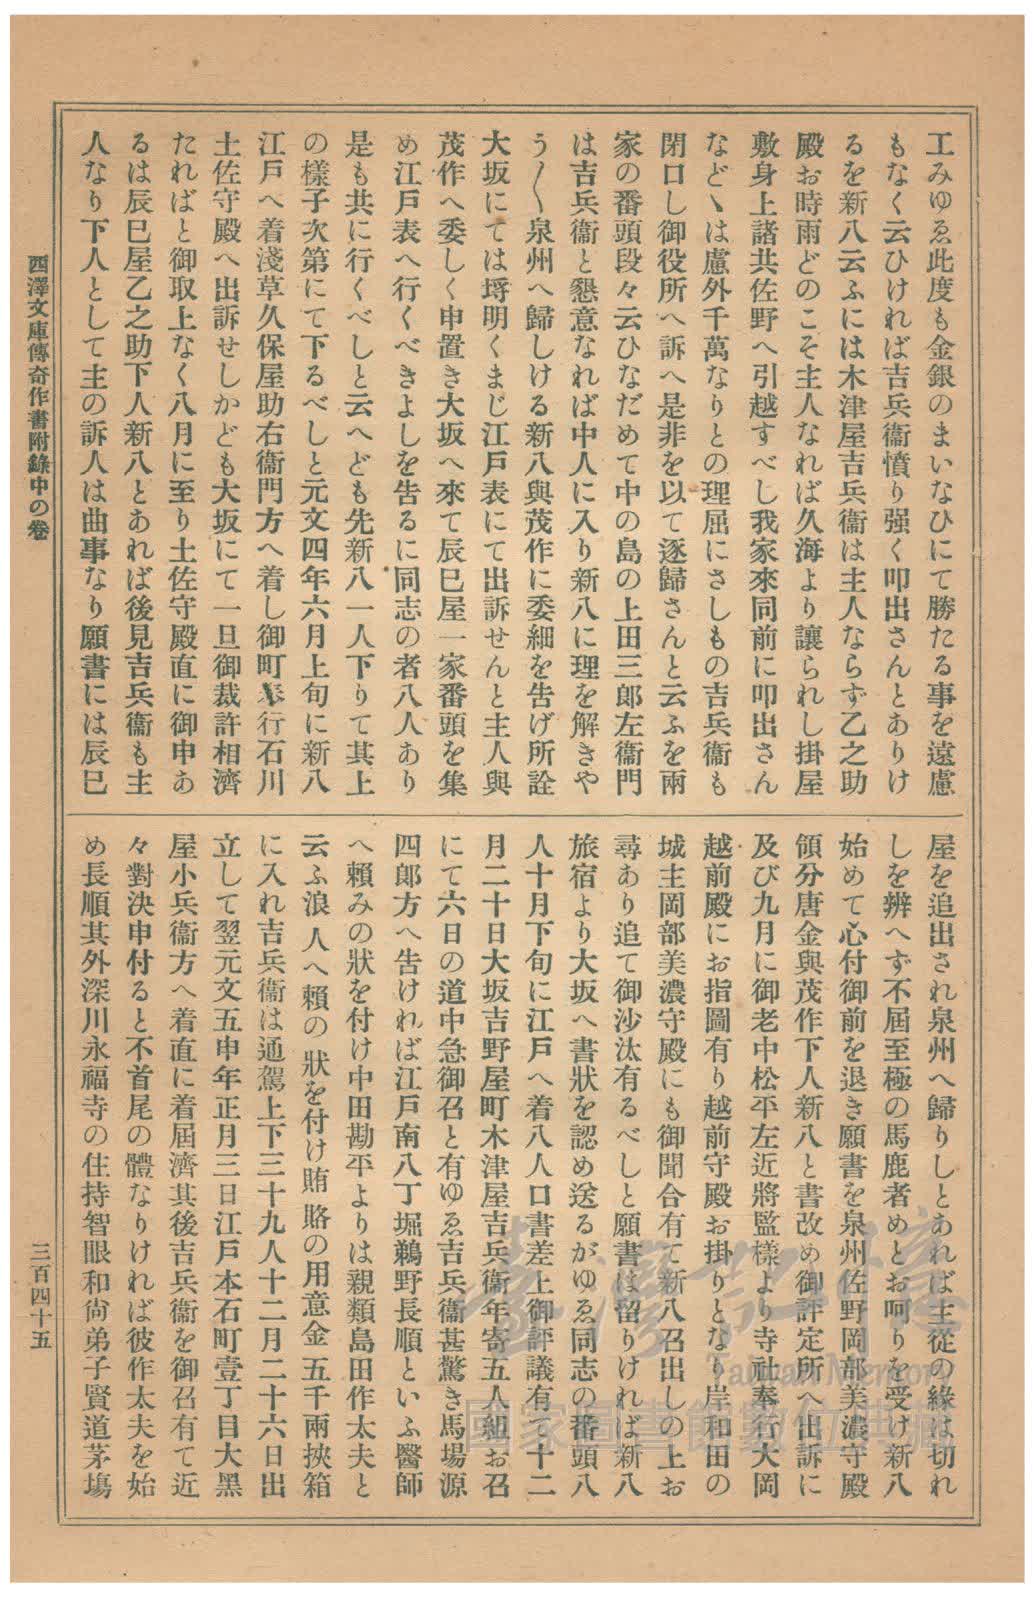 工みゆゑ此度も金銀のまいなひにて勝たる事を遠慮
もなく云ひければ吉兵衞憤り强く叩出さんとありけ
るを新八云ふには木津屋吉兵衞は主人ならず乙之助
殿お時雨どのこそ主人なれば久海より讓られし掛屋
敷身上諸共佐野へ引越すべし我家來同前に叩出さん
などゝは慮外千萬なりとの理屈にさしもの吉兵衞も
閉口し御役所へ訴へ是非を以て逐歸さんと云ふを兩
家の番頭段々云ひなだめて中の島の上田三郎左衞門
は吉兵衞と懇意なれば中人に入り新八に理を解きや
う〳〵泉州へ歸しける新八與茂作に委細を告げ所詮
大坂にては埒明くまじ江戸表にて出訴せんと主人與
茂作へ委しく申置き大坂へ來て辰巳屋一家番頭を集
め江戸表へ行くべきよしを告るに同志の者八人あり
是も共に行くべしと云へども先新八一人下りて其上
の樣子次第にて下るべしと元文四年六月上旬に新八
江戸へ着淺草久保屋助右衞門方へ着し御町奉行石川
土佐守殿へ出訴せしかども大坂にて一旦御裁許相濟
たればと御取上なく八月に至り土佐守殿直に御申あ
るは辰巳屋乙之助下人新八とあれば後見吉兵衞も主
人なり下人として主の訴人は曲事なり願書には辰巳
屋を追出され泉州へ歸りしとあれば主從の緣は切れ
しを辨へず不屆至極の馬鹿者めとお呵りを受け新八
始めて心付御前を退き願書を泉州佐野岡部美濃守殿
領分唐金與茂作下人新八と書改め御評定所へ出訴に
及び九月に御老中松平左近將監樣より寺社奉行大岡
越前殿にお指圖有り越前守殿お掛りとなり岸和田の
城主岡部美濃守殿にも御聞合有て新八召出しの上お
尋あり追て御沙汰有るべしと願書は留りければ新八
旅宿より大坂へ書狀を認め送るがゆゑ同志の番頭八
人十月下旬に江戸へ着八人口書差上御評議有て十二
月二十日大坂吉野屋町木津屋吉兵衞年寄五人組お召
にて六日の道中急御召と有ゆゑ吉兵衞甚驚き馬場源
四郎方へ告ければ江戸南八丁堀鵜野長順といふ醫師
へ賴みの狀を付け中田勘平よりは親類島田作太夫と
云ふ浪人へ賴の狀を付け賄賂の用意金五千兩挾箱
に入れ吉兵衞は通駕上下三十九人十二月二十六日出
立して翌元文五申年正月三日江戸本石町壹丁目大黑
屋小兵衞方へ着直に着屆濟其後吉兵衞を御召有て近
々對決申付ると不首尾の體なりければ彼作太夫を始
め長順其外深川永福寺の住持智眼和尙弟子賢道茅塲
西澤文庫傳奇作書附錄中の卷
三百四十五
臺灣記憶
Taiwan Memory
國家圖書館數位典藏